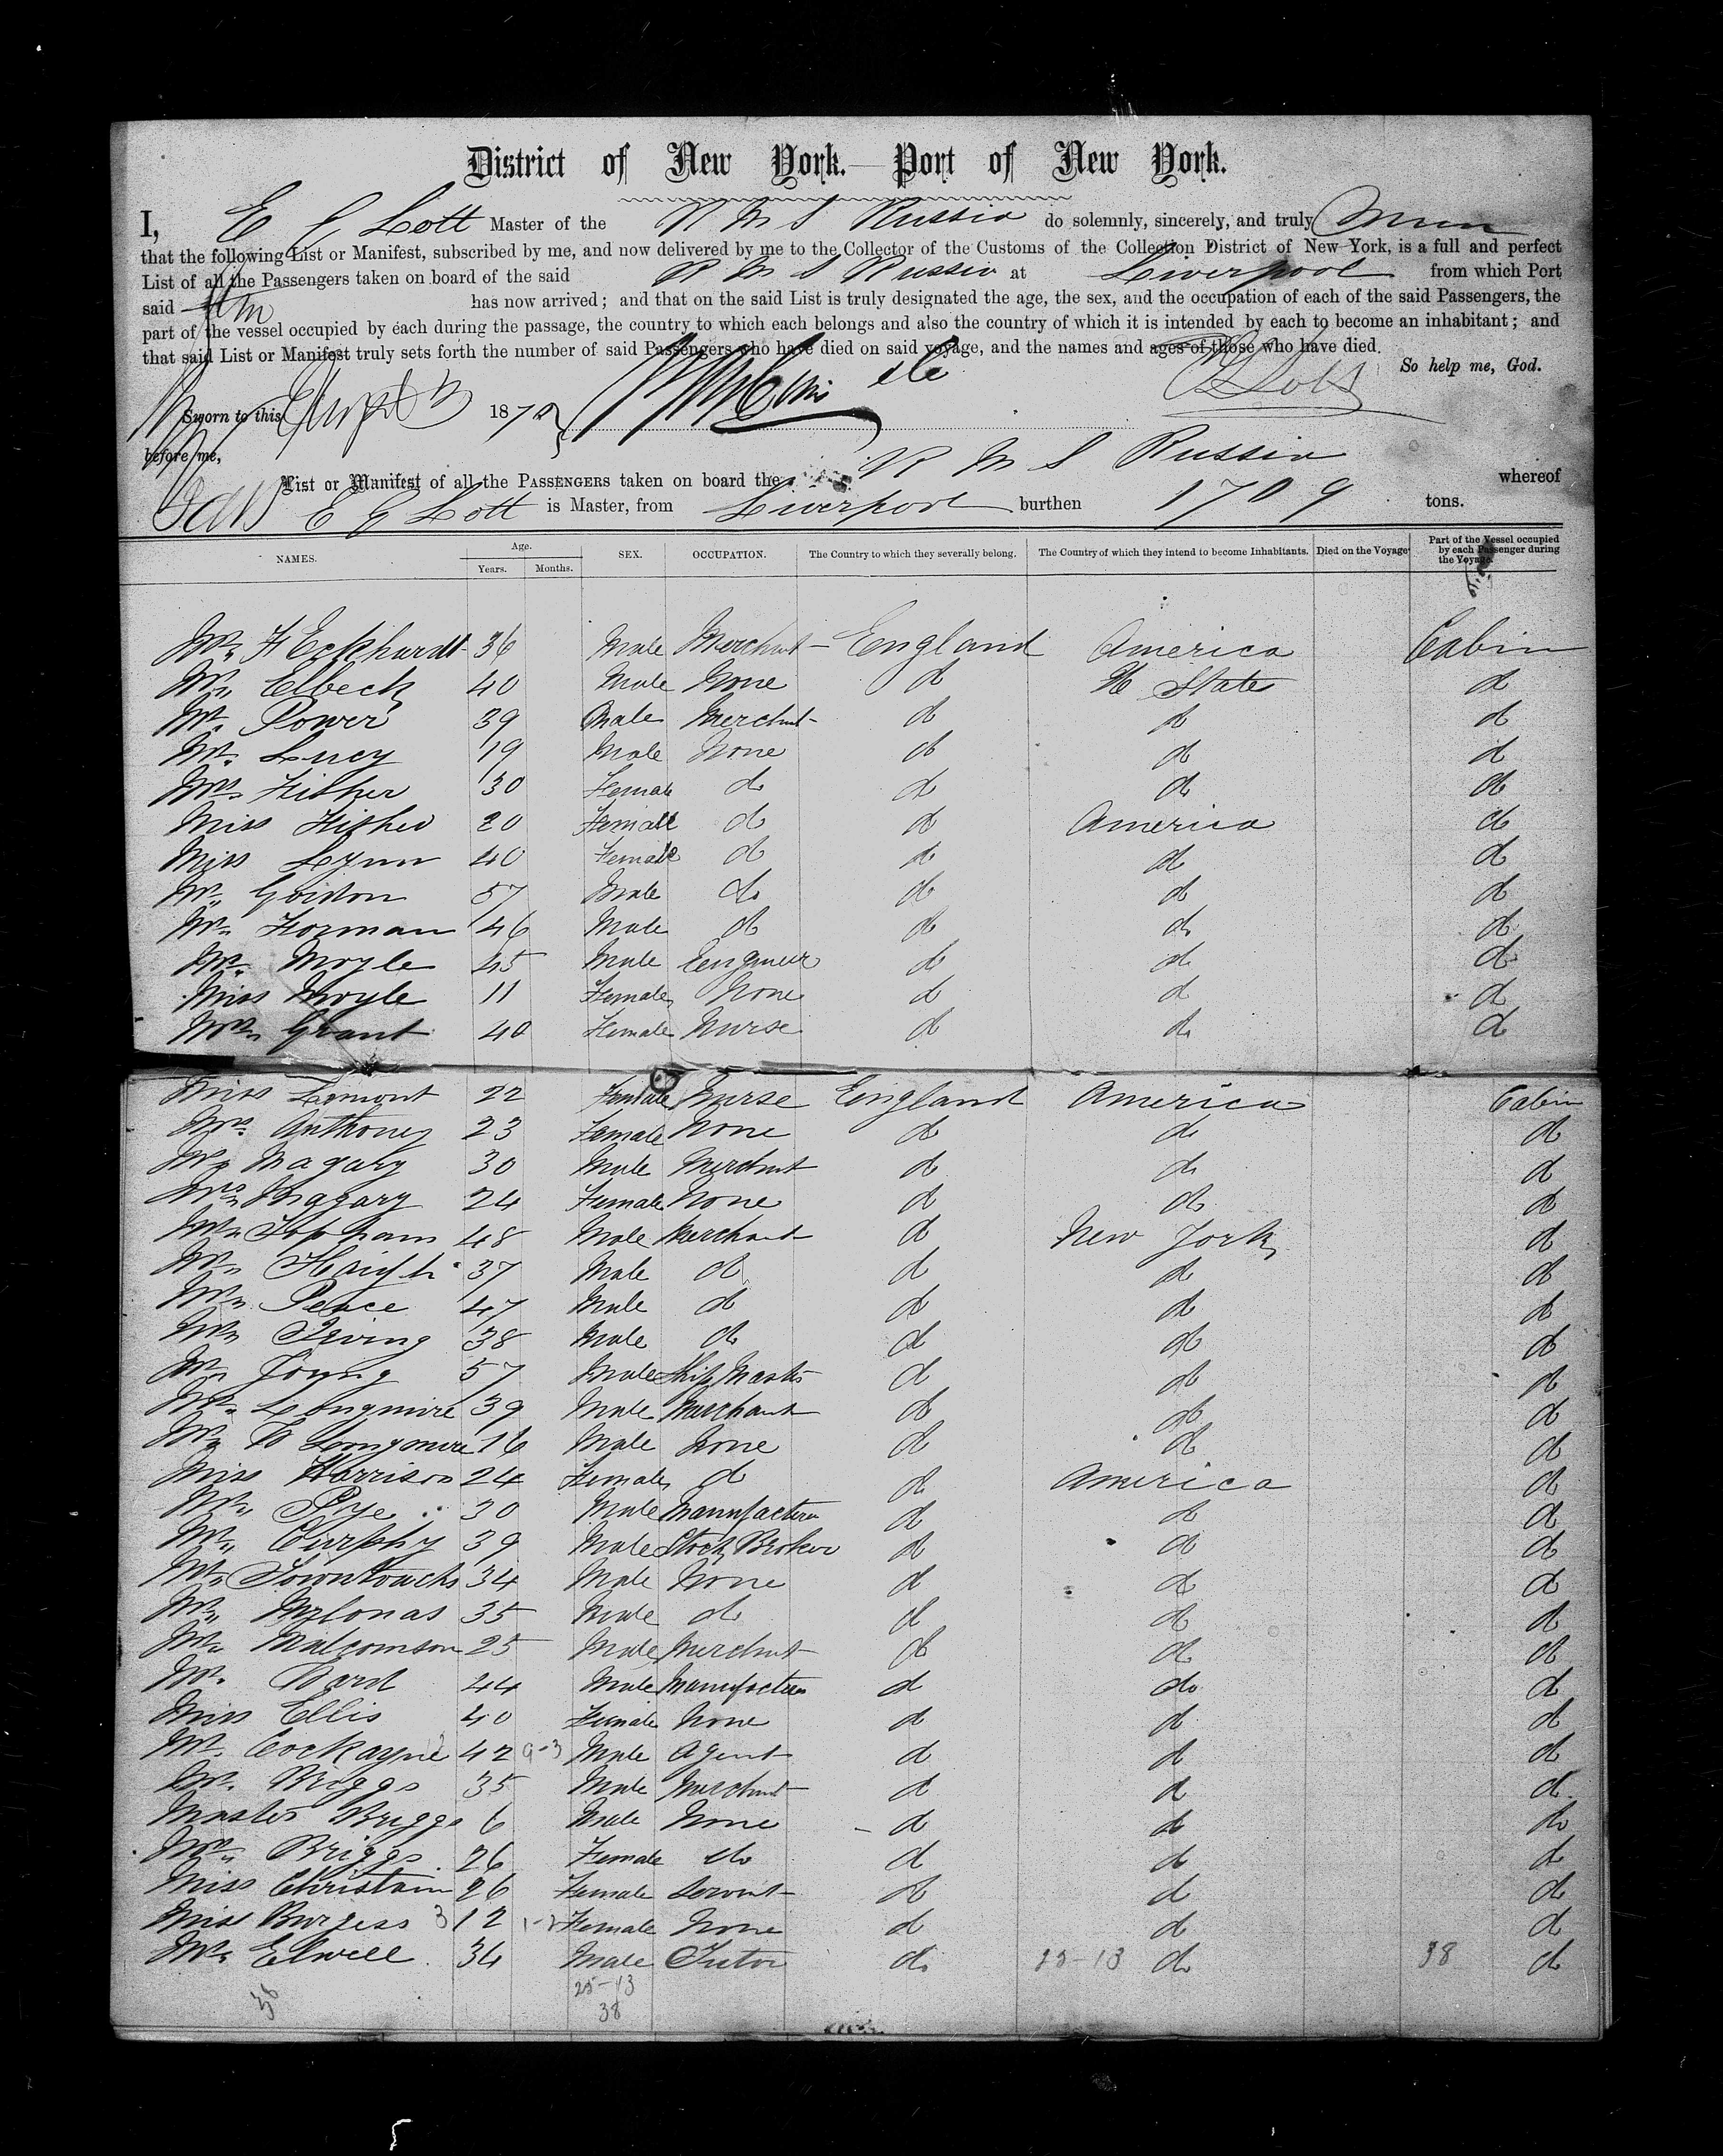 District of New York.— Port of New York.
I, E G Lott Master of the R M S Russia do solemnly, sincerely, and truly
that the following List or Manifest, subscribed by me, and now delivered by me to the Collector of the Customs of the Collection District of New York, is a full and perfect
List of all the Passengers taken on board of the said R M S Russia at Liverpool from which Port
said has now arrived; and that on the said List is truly designated the age, the sex, and the occupation of each of the said Passengers, the
part of the vessel occupied by each during the passage, the country to which each belongs and also the country of which it is intended by each to become an inhabitant; and
that said List or Manifest truly sets forth the number of said Passengers who have died on said voyage, and the names and ages of those who have died.
So help me, God.
Sworn to this 187 E G Lott
before me,
List or Manifest of all the PASSENGERS taken on board the R M S Russia whereof
E G Lott is Master, from Liverpool burthen 1709 tons.
NAMES. Age. Years. Months. SEX. OCCUPATION. The Country to which they severally belong. The Country of which they intend to become Inhabitants. Died on the Voyage Part of the Vessel occupied by each Passenger during the Voyage.
Mr F Eckhardt 36 Male Merchant England America Cabin
Mr Elbeck 40 Male None do U States do
Mr Power 39 Male Merchant do do do
Mr Lucy 19 Male None do do do
Mrs Fisher 30 Female do do do do
Miss Fisher 20 Female do do America do
Miss Lynn 40 Female do do do do
Mr Gordon 57 Male do do do do
Mr Forman 46 Male do do do do
Mr Moyle 45 Male Engineer do do do
Miss Moyle 11 Female None do do do
Mrs Grant 40 Female Nurse do do do
Miss Lemont 22 Female Nurse England America Cabin
Mrs Anthoney 23 Female None do do do
Mr Magary 30 Male Merchant do do do
Mrs Magary 24 Female None do do do
Mr Topham 48 Male Merchant do New York do
Mr Haigh 37 Male do do do do
Mr Peace 47 Male do do do do
Mr Irving 38 Male do do do do
Mr Young 57 Male Ship Master do do do
Mr Longmire 39 Male Merchant do do do
Mr Longmire 16 Male None do do do
Miss Harrison 24 Female do do America do
Mr Pye 30 Male Manufacturer do do do
Mr Curphy 39 Male Stock Broker do do do
Mr 34 Male None do do do
Mr Mylonas 35 Male do do do do
Mr Malcomson 25 Male Merchant do do do
Mr Ward 44 Male Manufacturer do do do
Miss Ellis 40 Female None do do do
Mr Cockayne 42 9-3 Male Agent do do do
Mr Briggs 35 Male Merchant do do do
Master Briggs 6 Male None do do do
Mrs Briggs 26 Female do do do do
Miss Christain 26 Female Servant do do do
Miss Burgess 3 12 1-2 Female None do do do
Mr Elwell 34 Male Tutor do 25-13 do 38 do
38 25-13
38
5